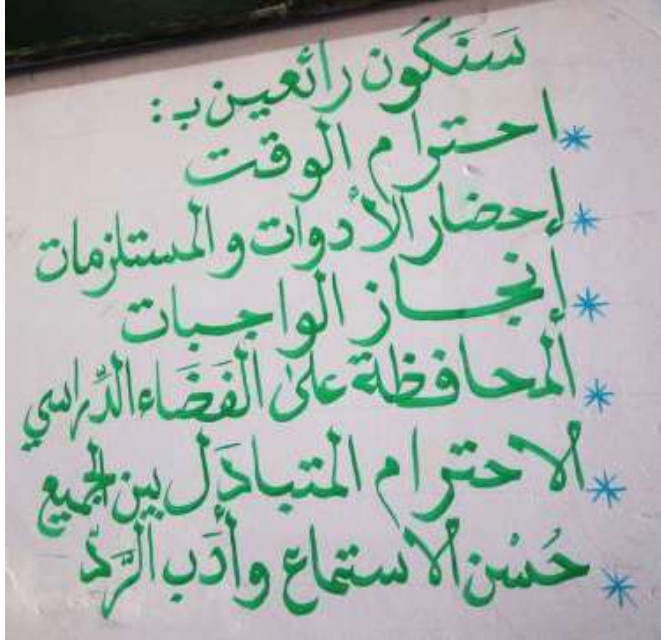 سَنَكُون رائعين بـ:
* احترام الوقت
* إحضار الأدوات والمستلزمات
* إنجاز الواجبات
* المحافظة على الفَضَاء الدِّراسي
* الاحترام المتبادَل بين الجميع
* حُسْن الاستماع وأدَب الرَّدّ